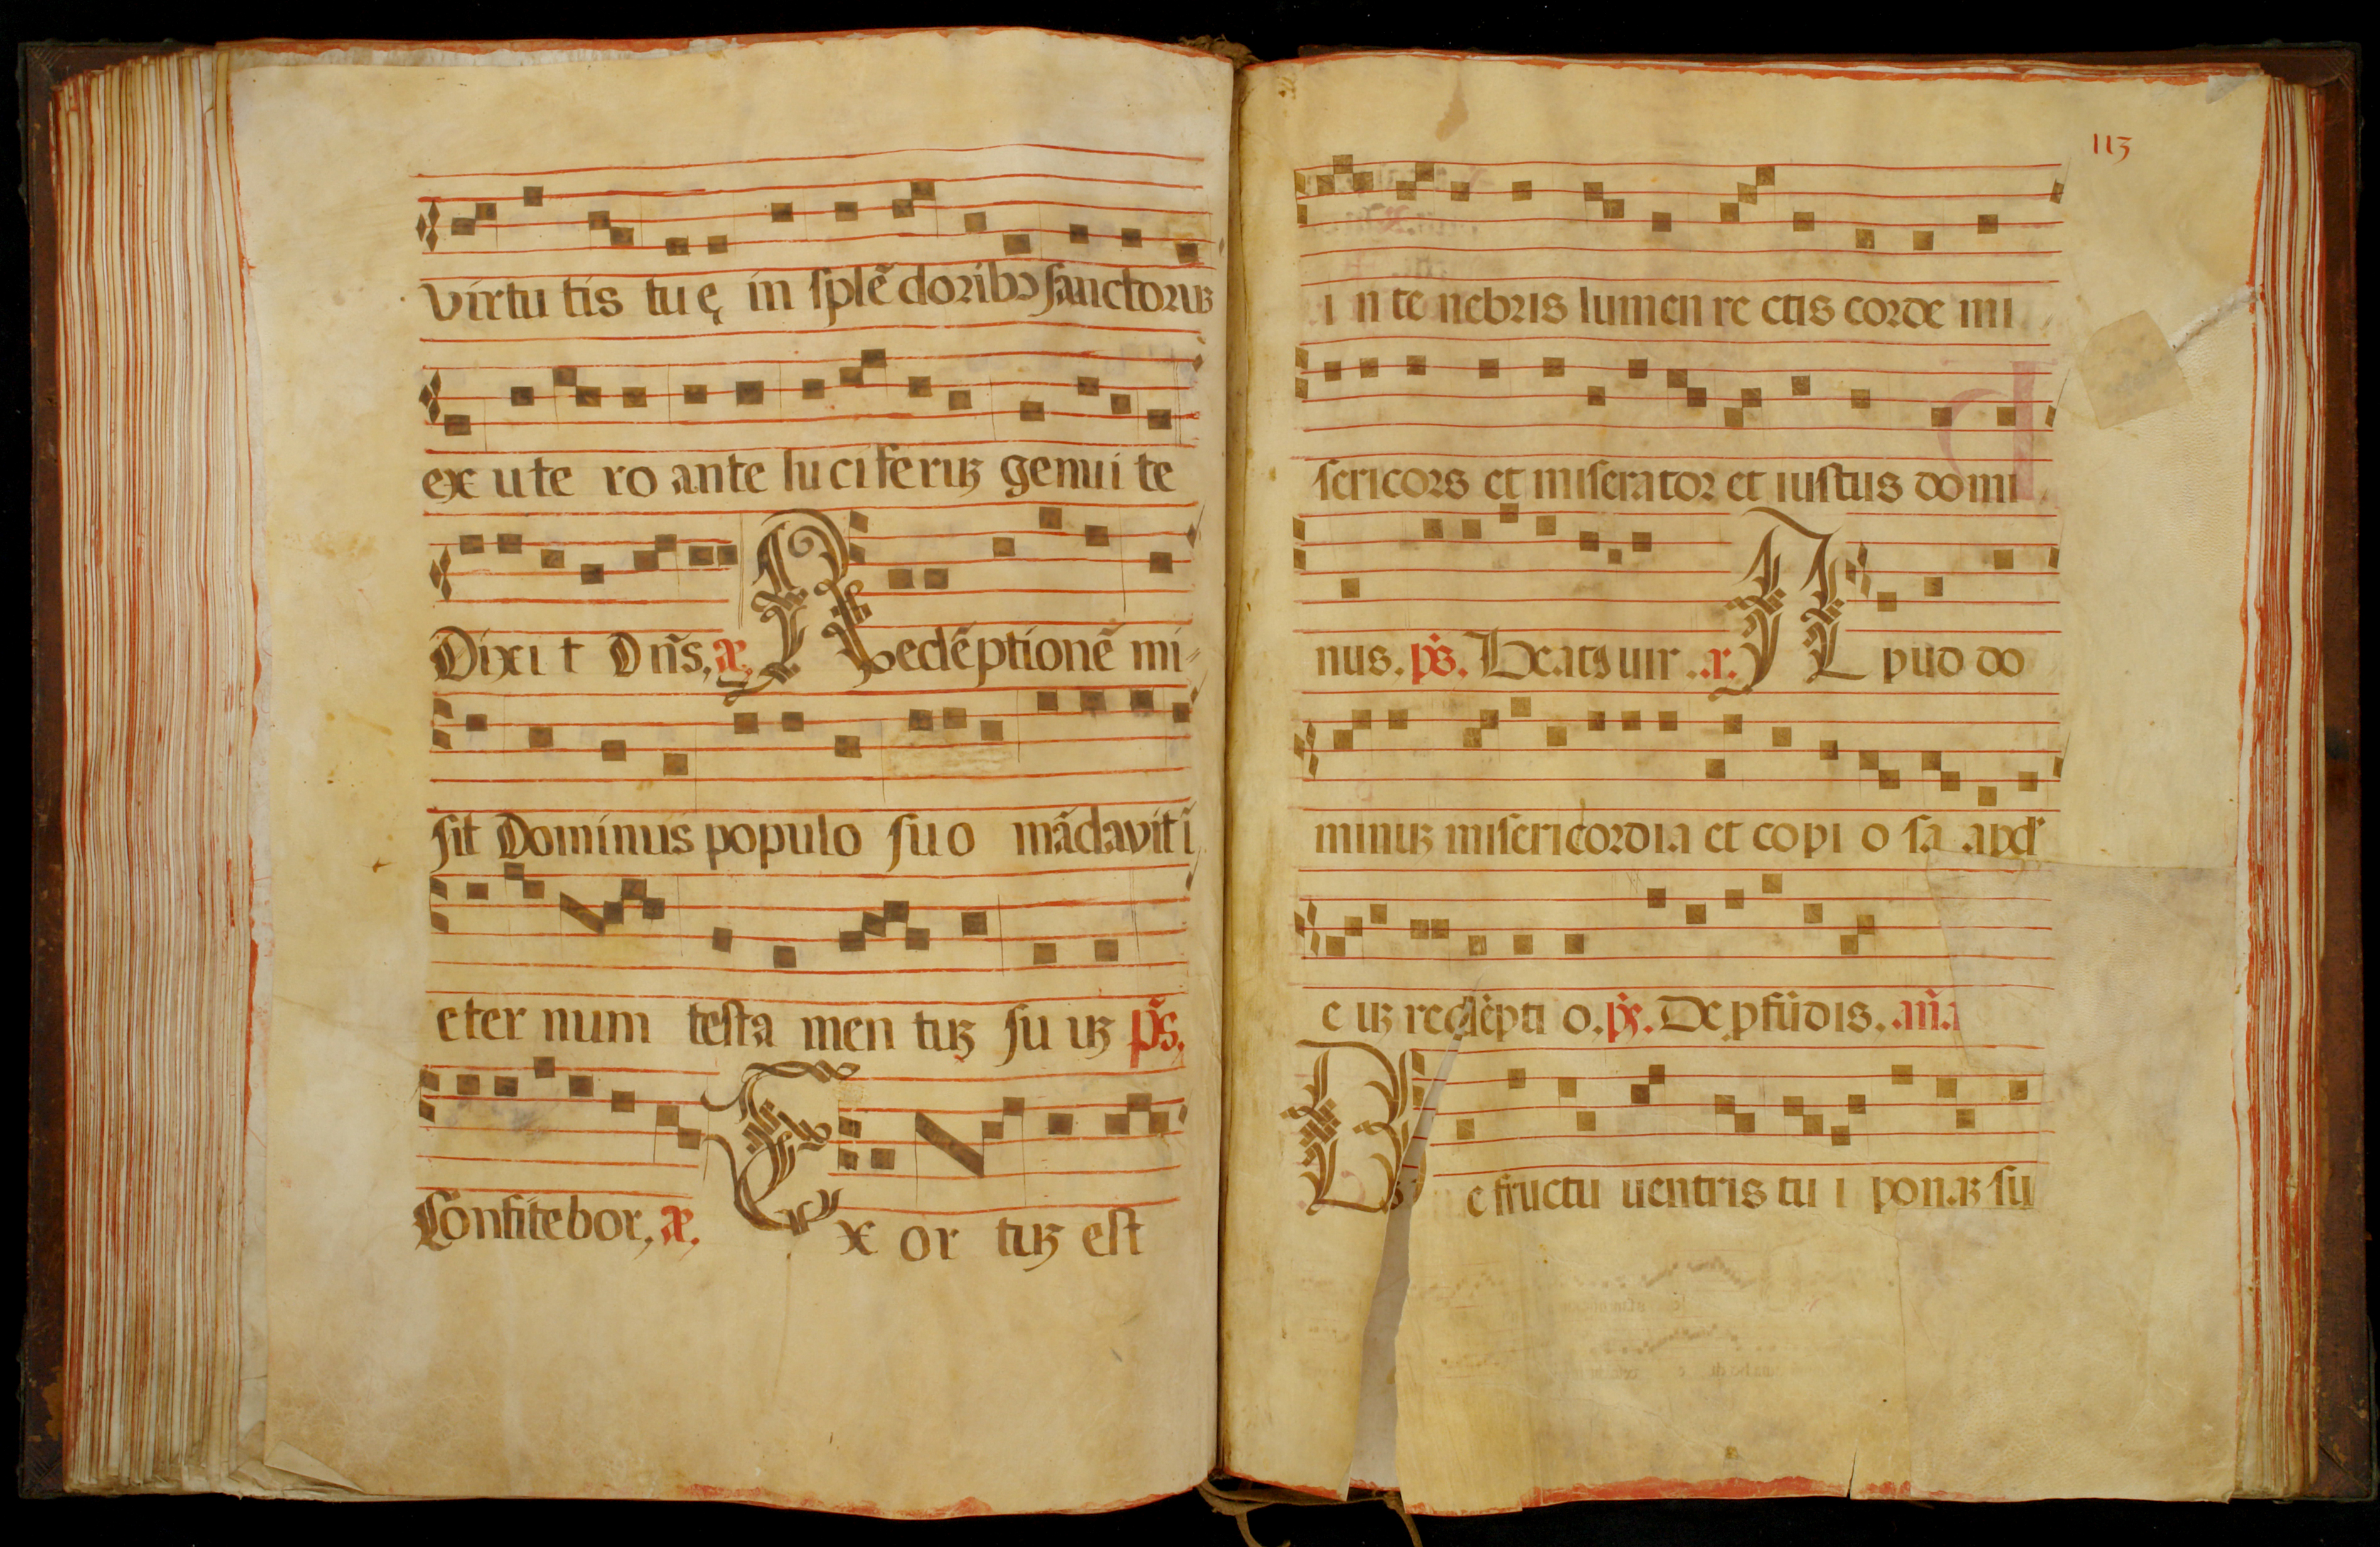 virtu tis tu ę in splẽ doribꝰ sanctoruꝫ
ex ute ro ante luciferuꝫ genui te
Dixi t Dñs, æ. Redẽptionẽ mi-
sit Dominus populo su o mãdavit ĩ
eter num testa men tuꝫ su uꝫ p̃s,
Confitebor, æ, Ex or tuꝫ est
113
i n te nebris lumen re ctis corde mi
sericors et miserator et iustus domi
nus. p̃s. Beatꝰ uir . a. A pud do
minuꝫ misericordia et copi o sa apd'
e iꝫ redẽpti o. p̃s. De pfũdis. añ.a
De fructu uentris tu i ponaꝫ su